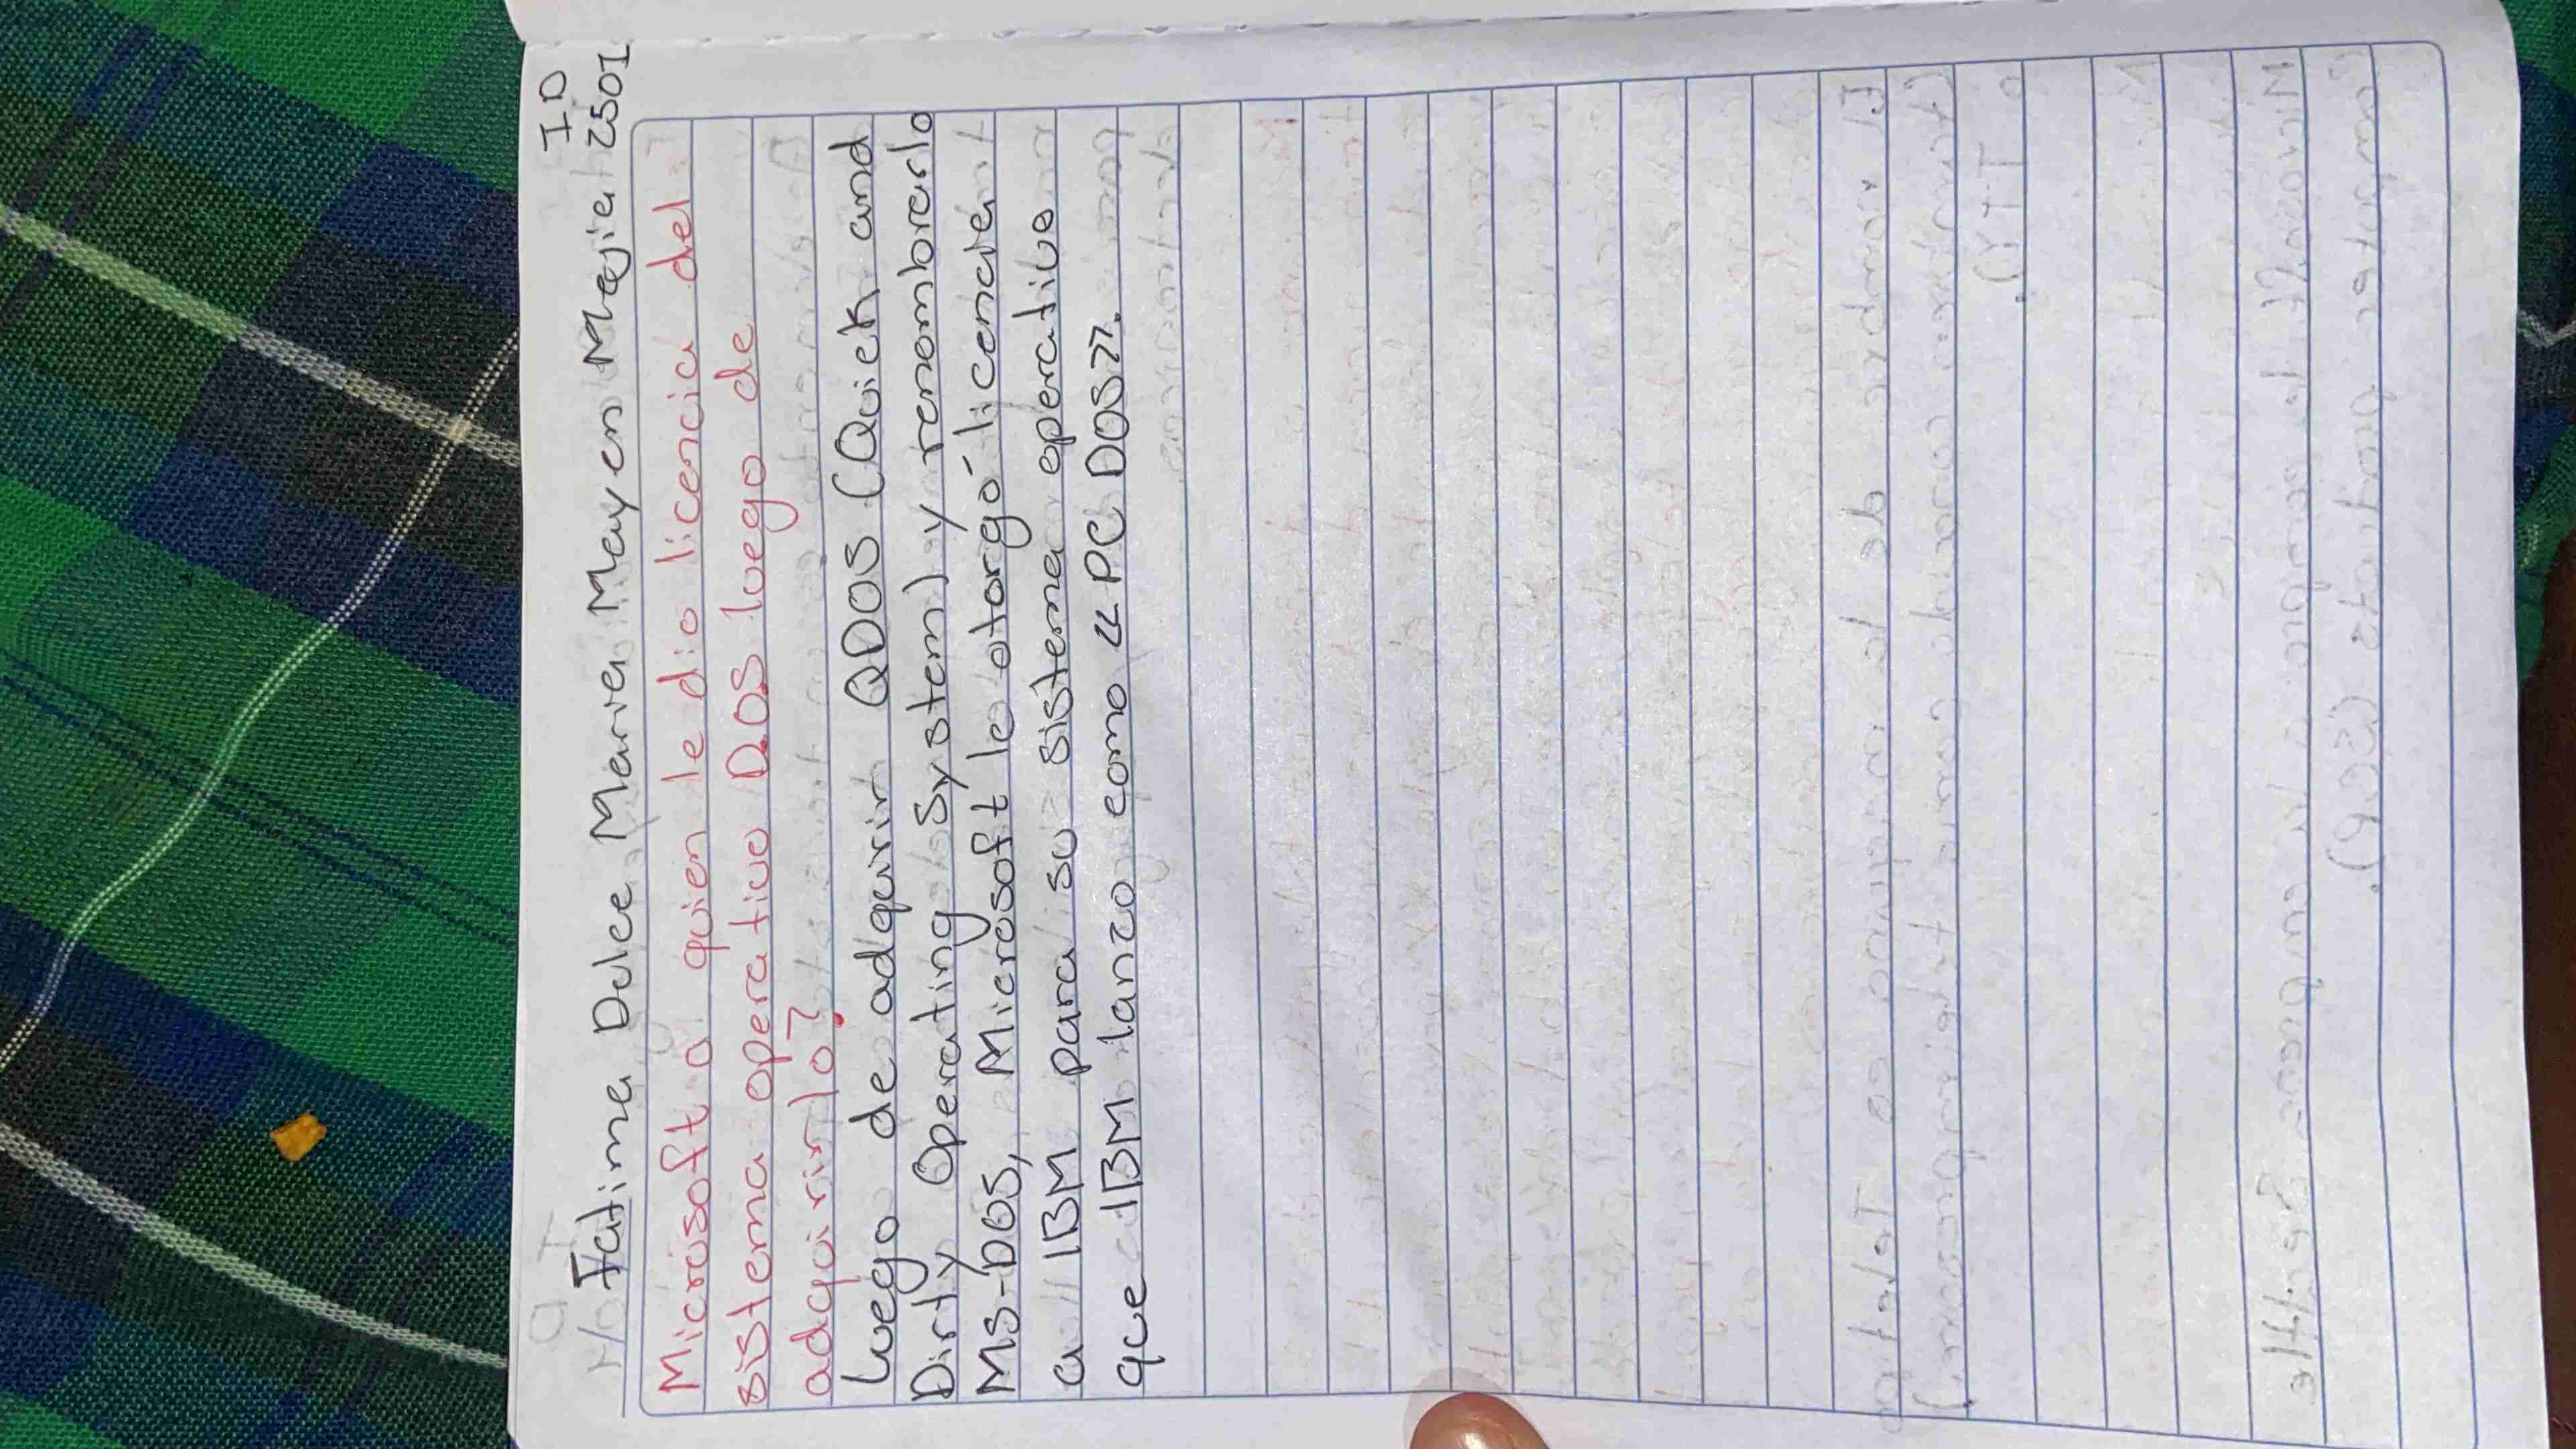 ID
Fatima Dulce Maria Mayen Mejia 2501
Microsoft a quien le dio licencia del
sistema operativo DOS luego de
adquirirlo?
Luego de adquirir QDOS (Quick and
Dirty Operating System) y renombrarlo
MS-DOS, Microsoft le otorgó licencia
a IBM para su sistema operativo
que IBM lanzo como "PC DOS".